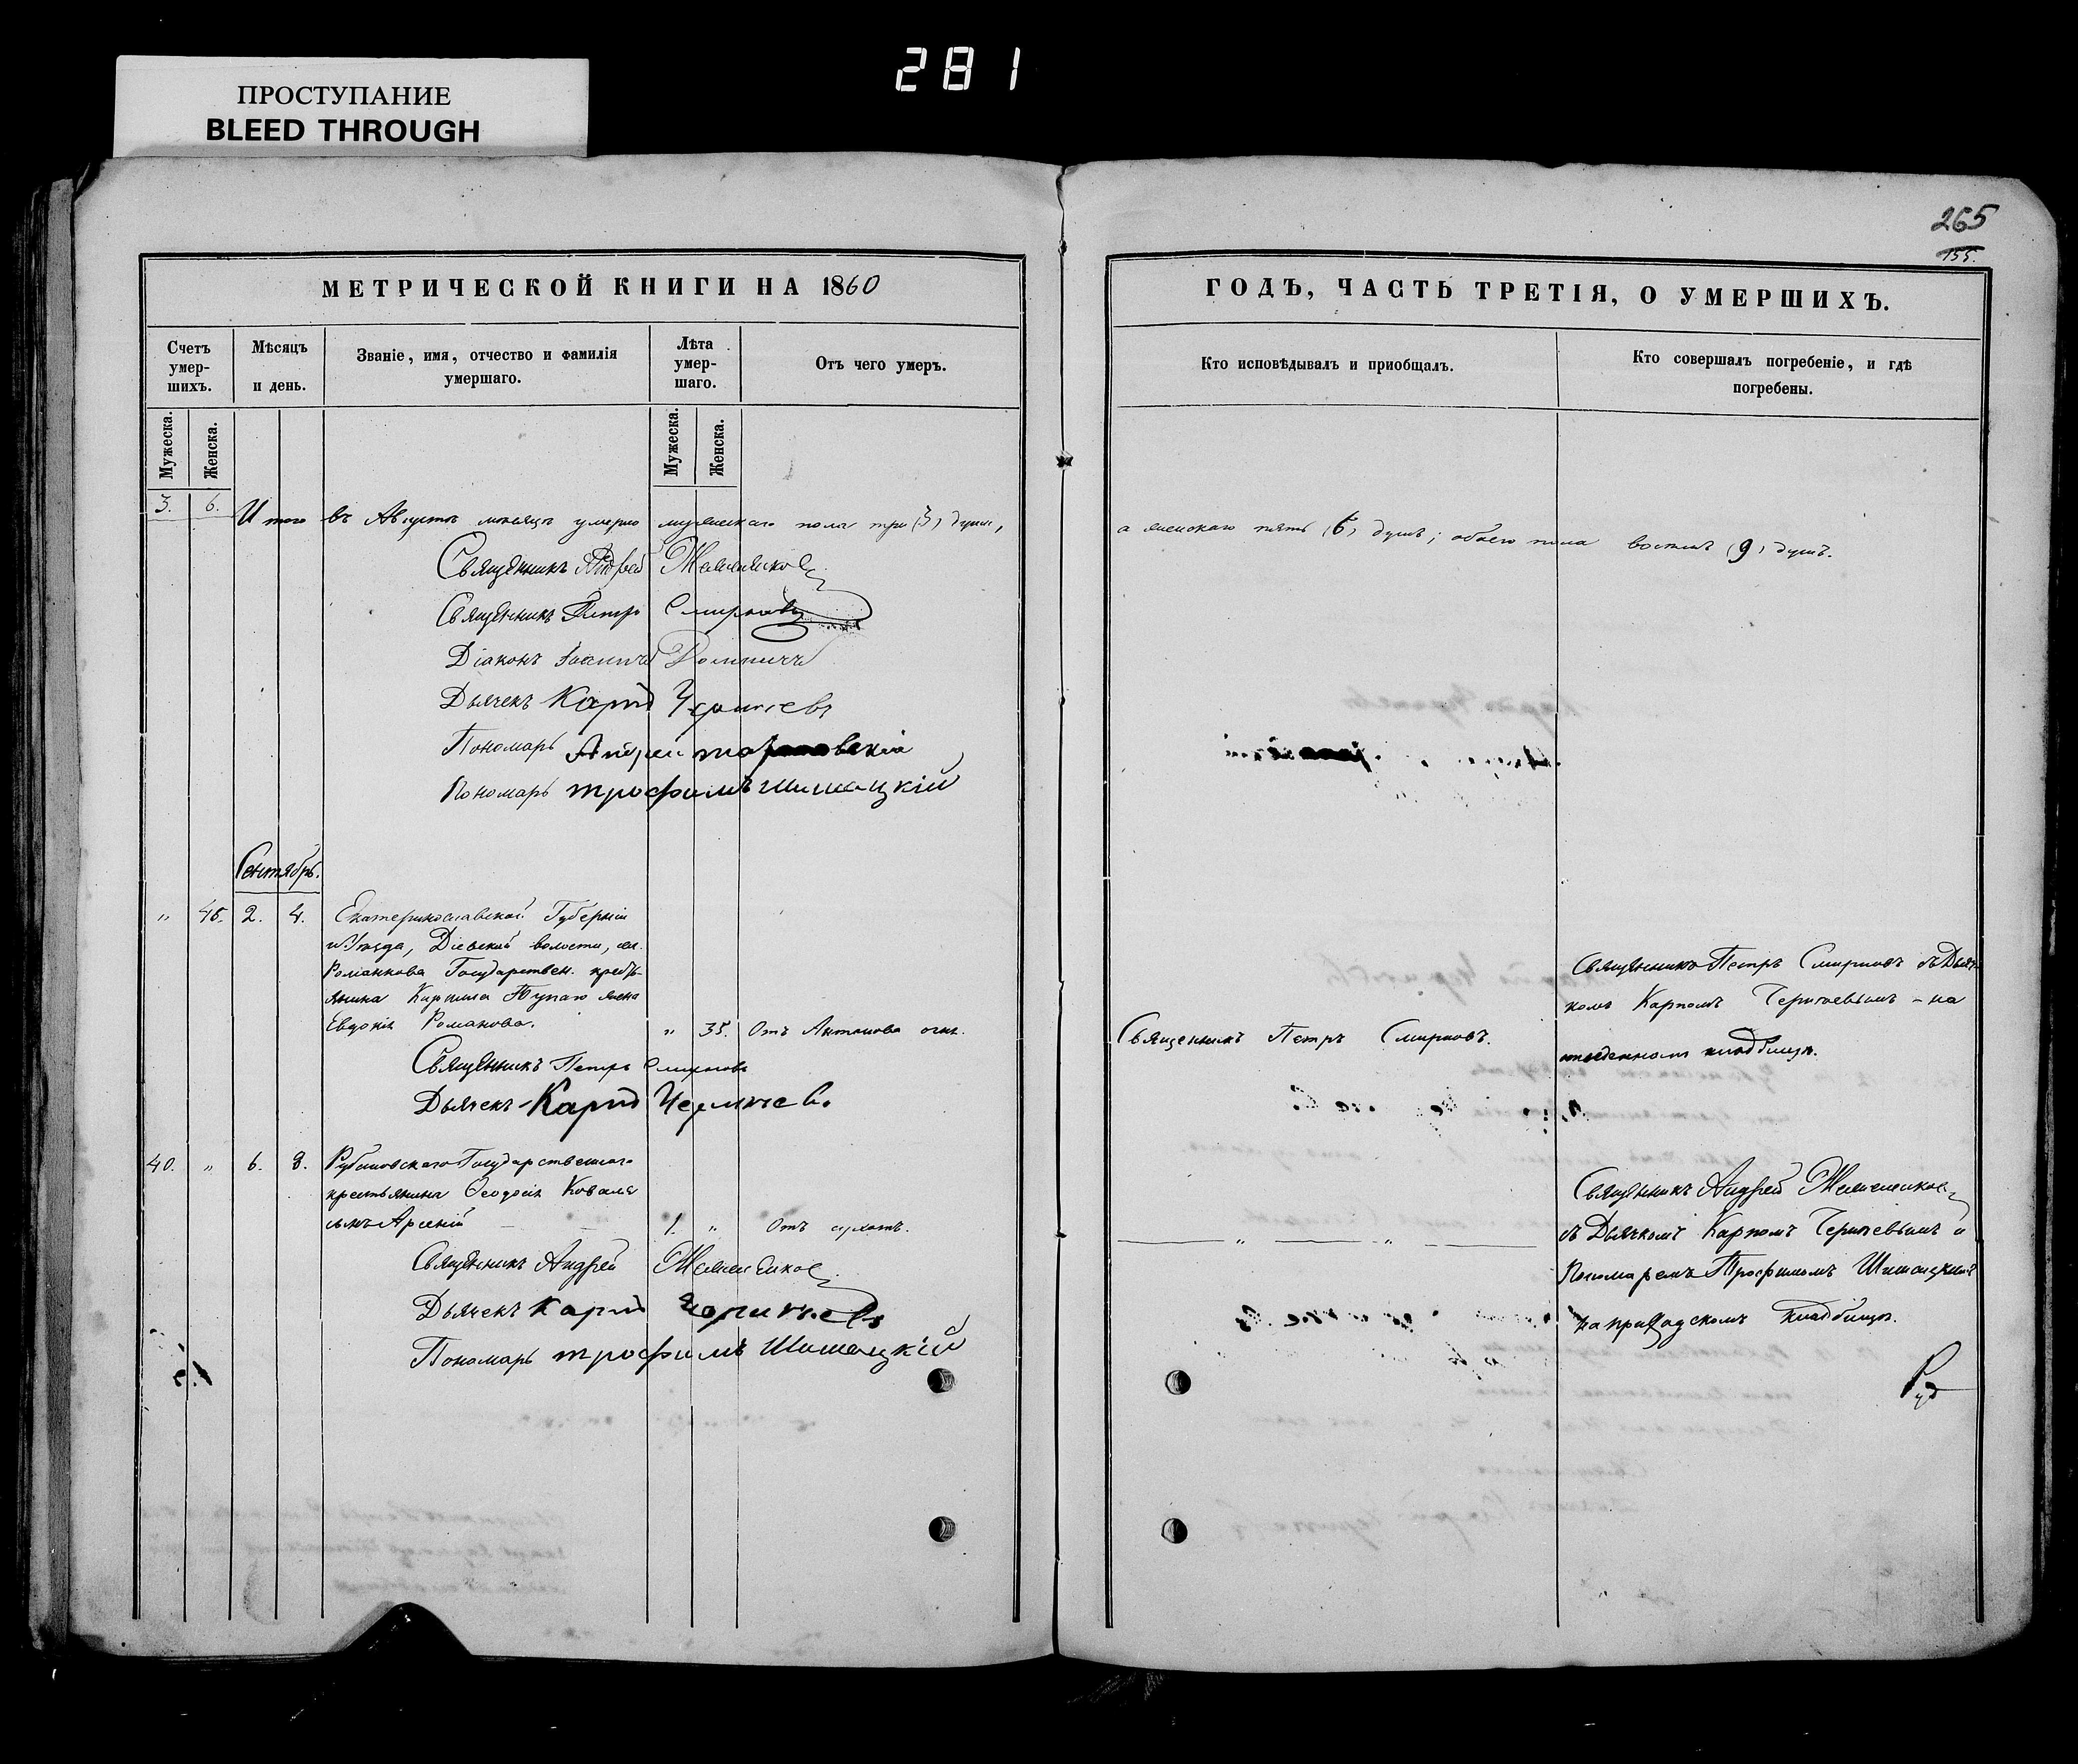 281
ПРОСТУПАНИЕ
BLEED THROUGH
265
155.
МЕТРИЧЕСКОЙ КНИГИ НА 1860
ГОДЪ, ЧАСТЬ ТРЕТІЯ, О УМЕРШИХЪ.
Счетъ умер-шихъ.
Мѣсяцъ и день.
Званіе, имя, отчество и фамилія умершаго.
Лѣта умер-шаго.
Отъ чего умеръ.
Кто исповѣдывалъ и приобщалъ.
Кто совершалъ погребеніе, и гдѣ погребены.
Мужеска.
Женска.
Мужеска.
Женска.
3. 6. Итого въ Августѣ месяцѣ умерло мужескаго пола три (3) души,
а женскаго пять (6) душъ; обоего пола восемь (9) душъ.
Священникъ Андрей
Священникъ Петръ Смирновъ
Діаконъ Іоаннъ
Дьячекъ Карпъ Черничевъ
Пономарь Андрей
Пономарь Трофимъ Шишацкій
Сентябрь.
" 45. 2. 4. Екатеринославской Губерніи
и Уѣзда, Діевской волости, сел.
Романкова Государствен. кресть-
янина Кирилла жена
Евдокія Романова.
" 35. Отъ Антонова огня.
Священникъ Петръ Смирновъ.
Священникъ Петръ Смирновъ съ Дьяч-
комъ Карпомъ Черничевымъ - на
кладбищѣ.
Священникъ Петръ Смирновъ
Дьячекъ Карпъ Черничевъ
40. " 6. 8. Рубановскаго Государственнаго
крестьянина Феодосія Коваля
сынъ Арсеній
1. " Отъ сухотъ.
" "
Священникъ Андрей
съ Дьячкомъ Карпомъ Черничевымъ и
Пономаремъ Трофимомъ Шишацкимъ
на приходскомъ кладбищѣ.
Священникъ Андрей
Дьячекъ Карпъ Черничевъ
Пономарь Трофимъ Шишацкій